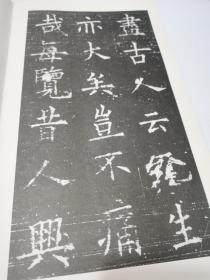 盡古人云死生
亦大矣豈不痛
哉每覽昔人興